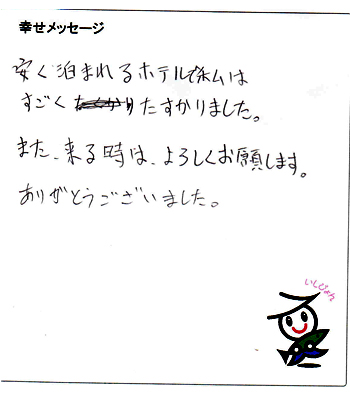 幸せメッセージ
安く泊まれるホテルで私は
すごくたすかりました。
また、来る時は、よろしくお願します。
ありがとうございました。